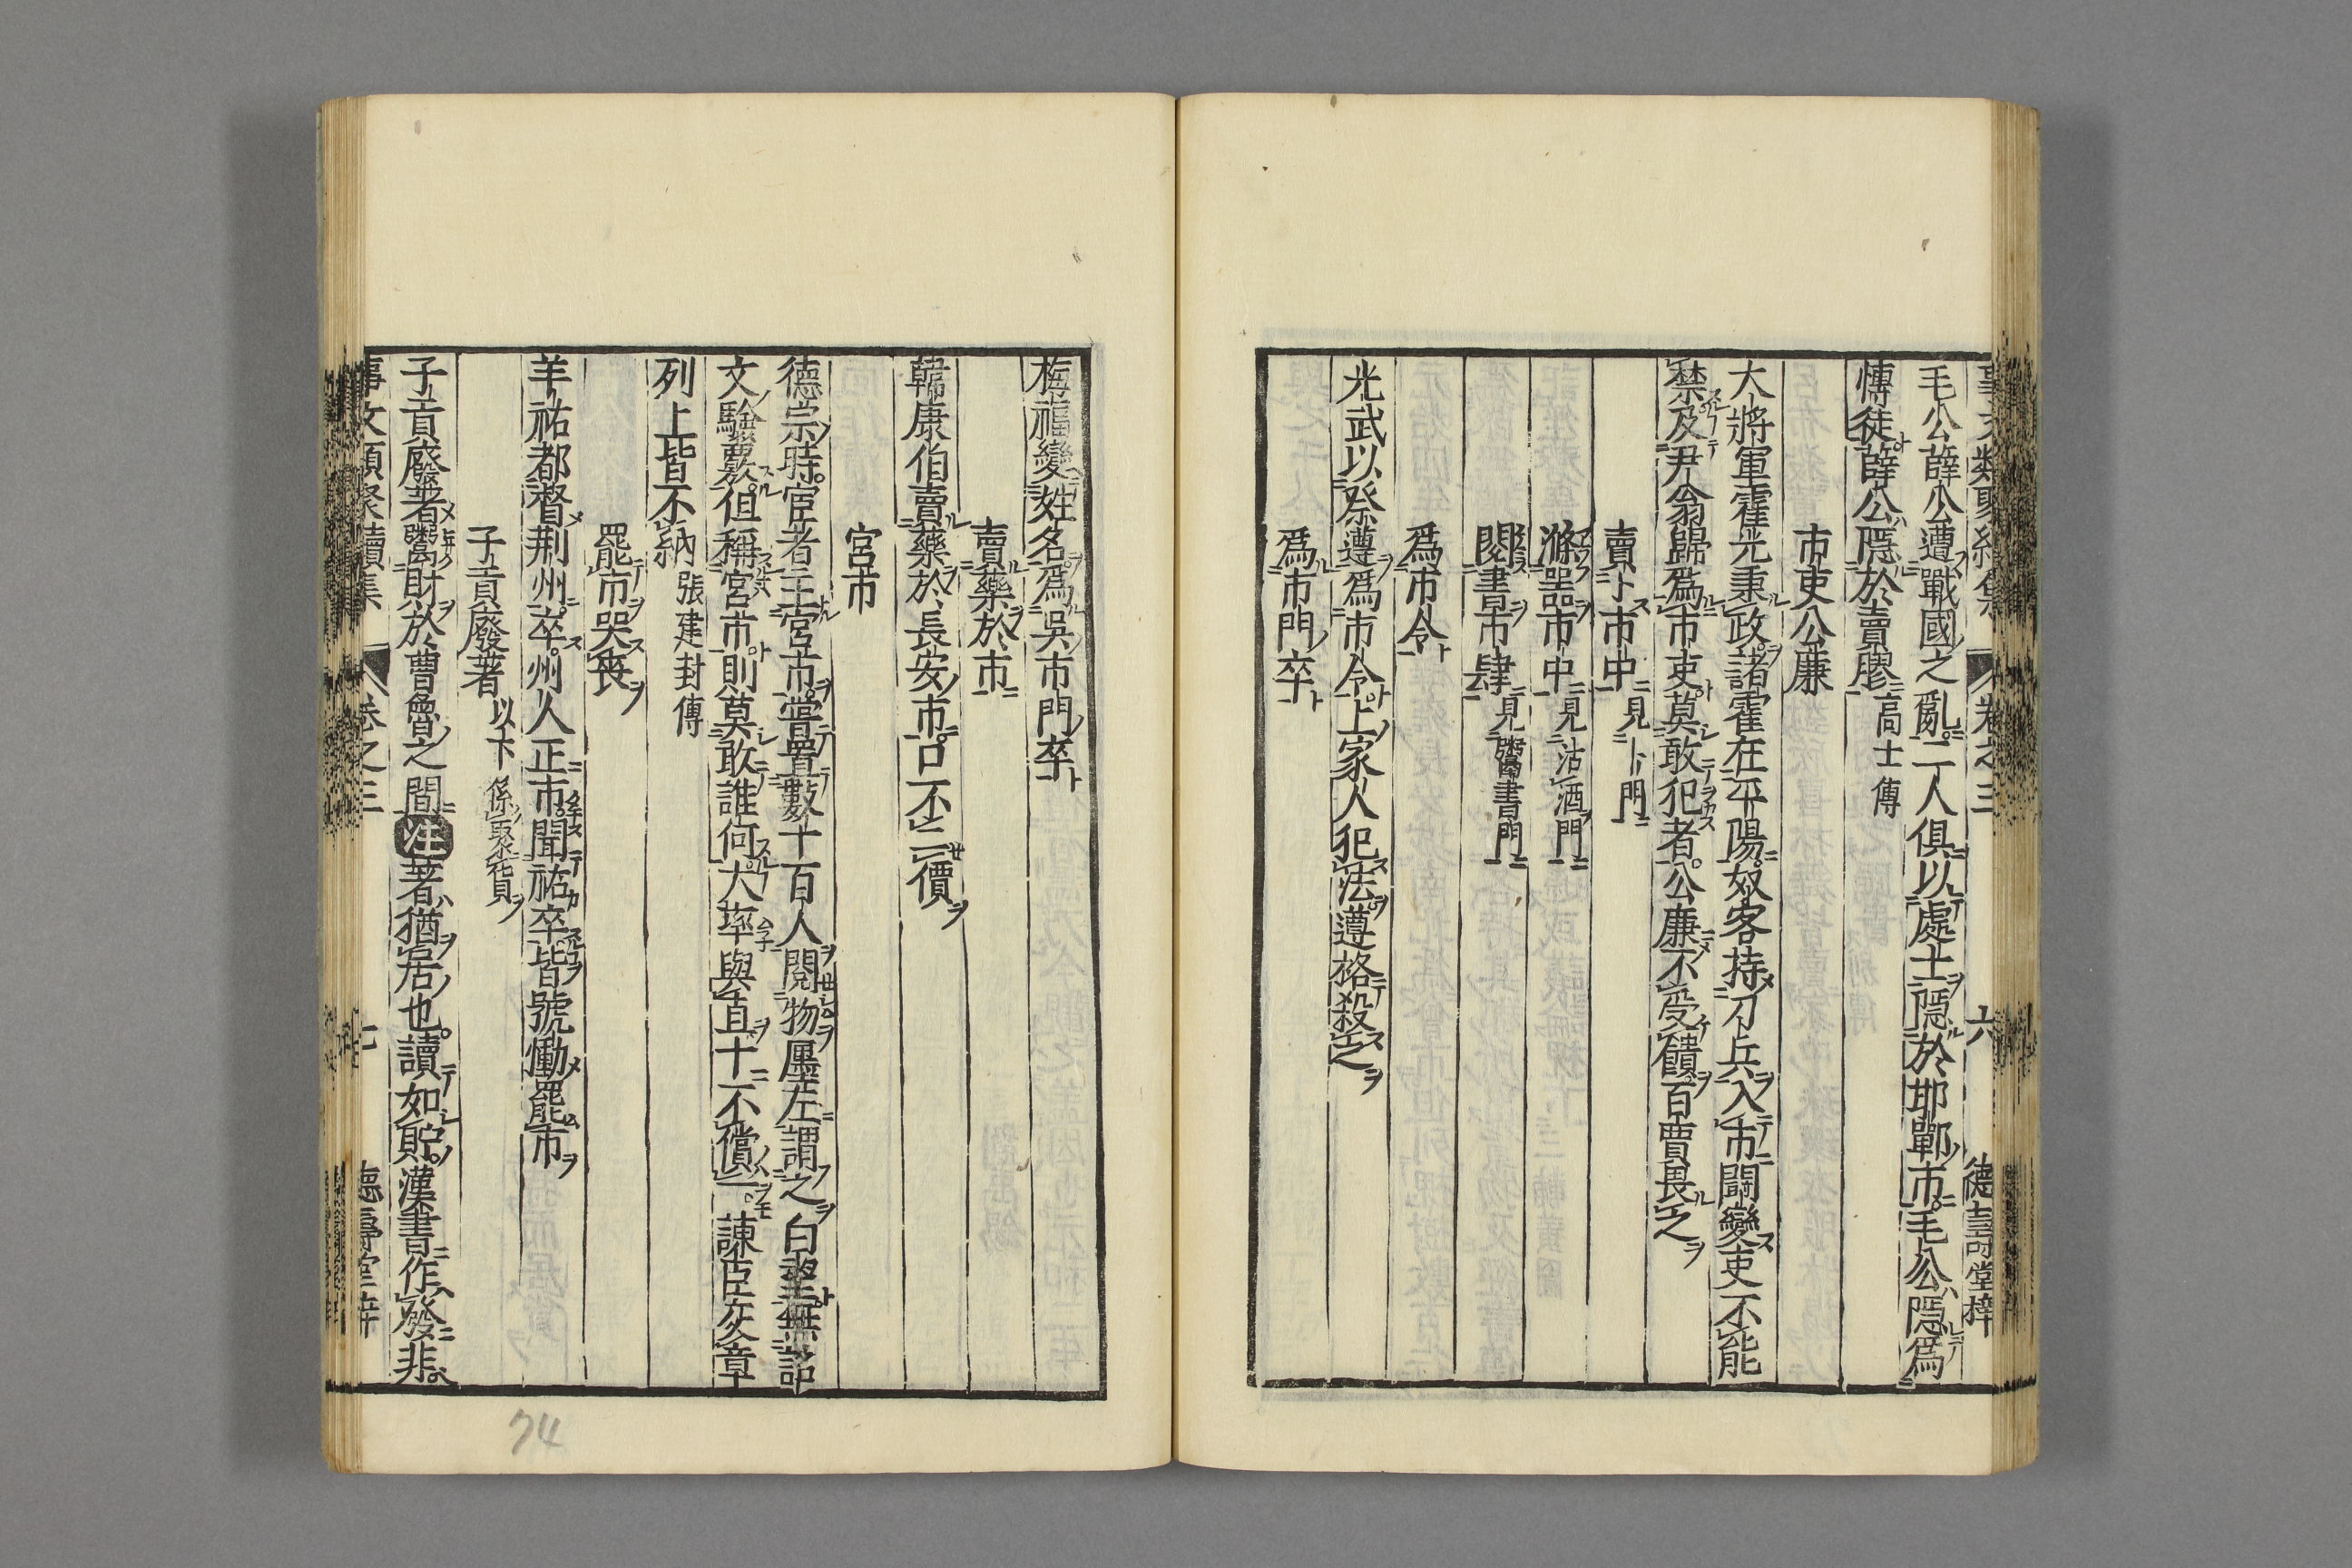 事文類聚續集 卷之三 六 德壽堂梓
毛公薛公遭戰國之亂二人俱以處士隱於邯鄲市毛公隱爲
慱徒薛公隱於賣膠高士傳
市吏公廉
大將軍霍光秉政諸霍在平陽奴客持刀兵入市鬪變吏不能
禁及尹翁歸爲市吏莫敢犯者公廉不受饋百賈畏之
賣卜市中見卜門
滌器市中見沽酒門
閱書市肆見鬻書門
爲市令
光武以祭遵爲市令上家人犯法遵格殺之
爲市門卒
梅福變姓名爲吳市門卒
賣藥於市
韓康伯賣藥於長安市口不二價
宮市
德宗時宦者主宮市嘗置數十百人閱物廛左謂之白望無詔
文驗覈但稱宮市則莫敢誰何大率與直十不償一諫臣交章
列上皆不納張建封傳
罷市哭喪
羊祜都督荆州卒州人正市聞祜卒皆號慟罷市
子貢廢著以下係聚貨
子貢廢著鬻財於曹魯之間注著猶居也讀如貯漢書作發非
事文類聚續集 卷之三 七 德壽堂梓
74